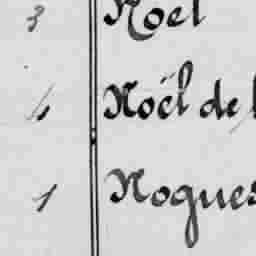 3 Noël
Noël de
1 Nogues